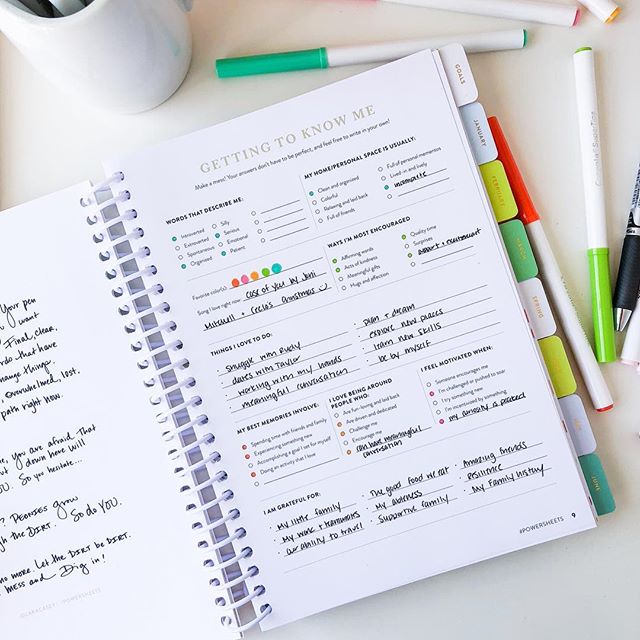 Your pen
want
Final, clear,
do that have
change things.
overwhelmed, lost.
path right now.
you are afraid. That
down here will
YOU. So you hesitate...
? PEONIES grow
the DIRT. So do YOU.
no more. Let the DIRT be DIRT.
MESS and Dig in!
GETTING TO KNOW ME
Make a mess! Your answers don't have to be perfect, and feel free to write in your own!
WORDS THAT DESCRIBE ME:
Introverted
Extroverted
Spontaneous
Organized
Silly
Serious
Emotional
Patient
MY HOME/PERSONAL SPACE IS USUALLY:
Clean and organized
Colorful
Relaxing and laid back
Full of friends
Full of personal memories
Lived-in and lively
Favorite color(s)
Song I love right now: case of you by Joni
Mitchell + Cecla's Christmas
WAYS I'M MOST ENCOURAGED
Affirming words
Acts of kindness
Meaningful gifts
Hugs and affection
Quality time
Surprises
THINGS I LOVE TO DO:
• snuggle with Rudy
• dates with Taylor
• working with my hands
• meaningful conversation
• plan + dream
• explore new places
• learn new skills
• be by myself
MY BEST MEMORIES INVOLVE:
Spending time with friends and family
Experiencing something new
Accomplishing a goal I set for myself
Doing an activity that I love
I LOVE BEING AROUND
PEOPLE WHO:
Are fun-loving and laid back
Are driven and dedicated
Challenge me
Encourage me
can have meaningful
conversation
I FEEL MOTIVATED WHEN:
Someone encourages me
I'm challenged or pushed to soar
I try something new
I'm incentivized by something
my curiosity is peaked
I AM GRATEFUL FOR:
• My little family
• My work + teammates
• our ability to travel
• The good food we eat
• My aliveness
• Supportive family
• Amazing friends
• resilience
• My Family history
#POWERSHEETS
9
GOALS
JANUARY
FEBRUARY
MARCH
SPRING
JUNE